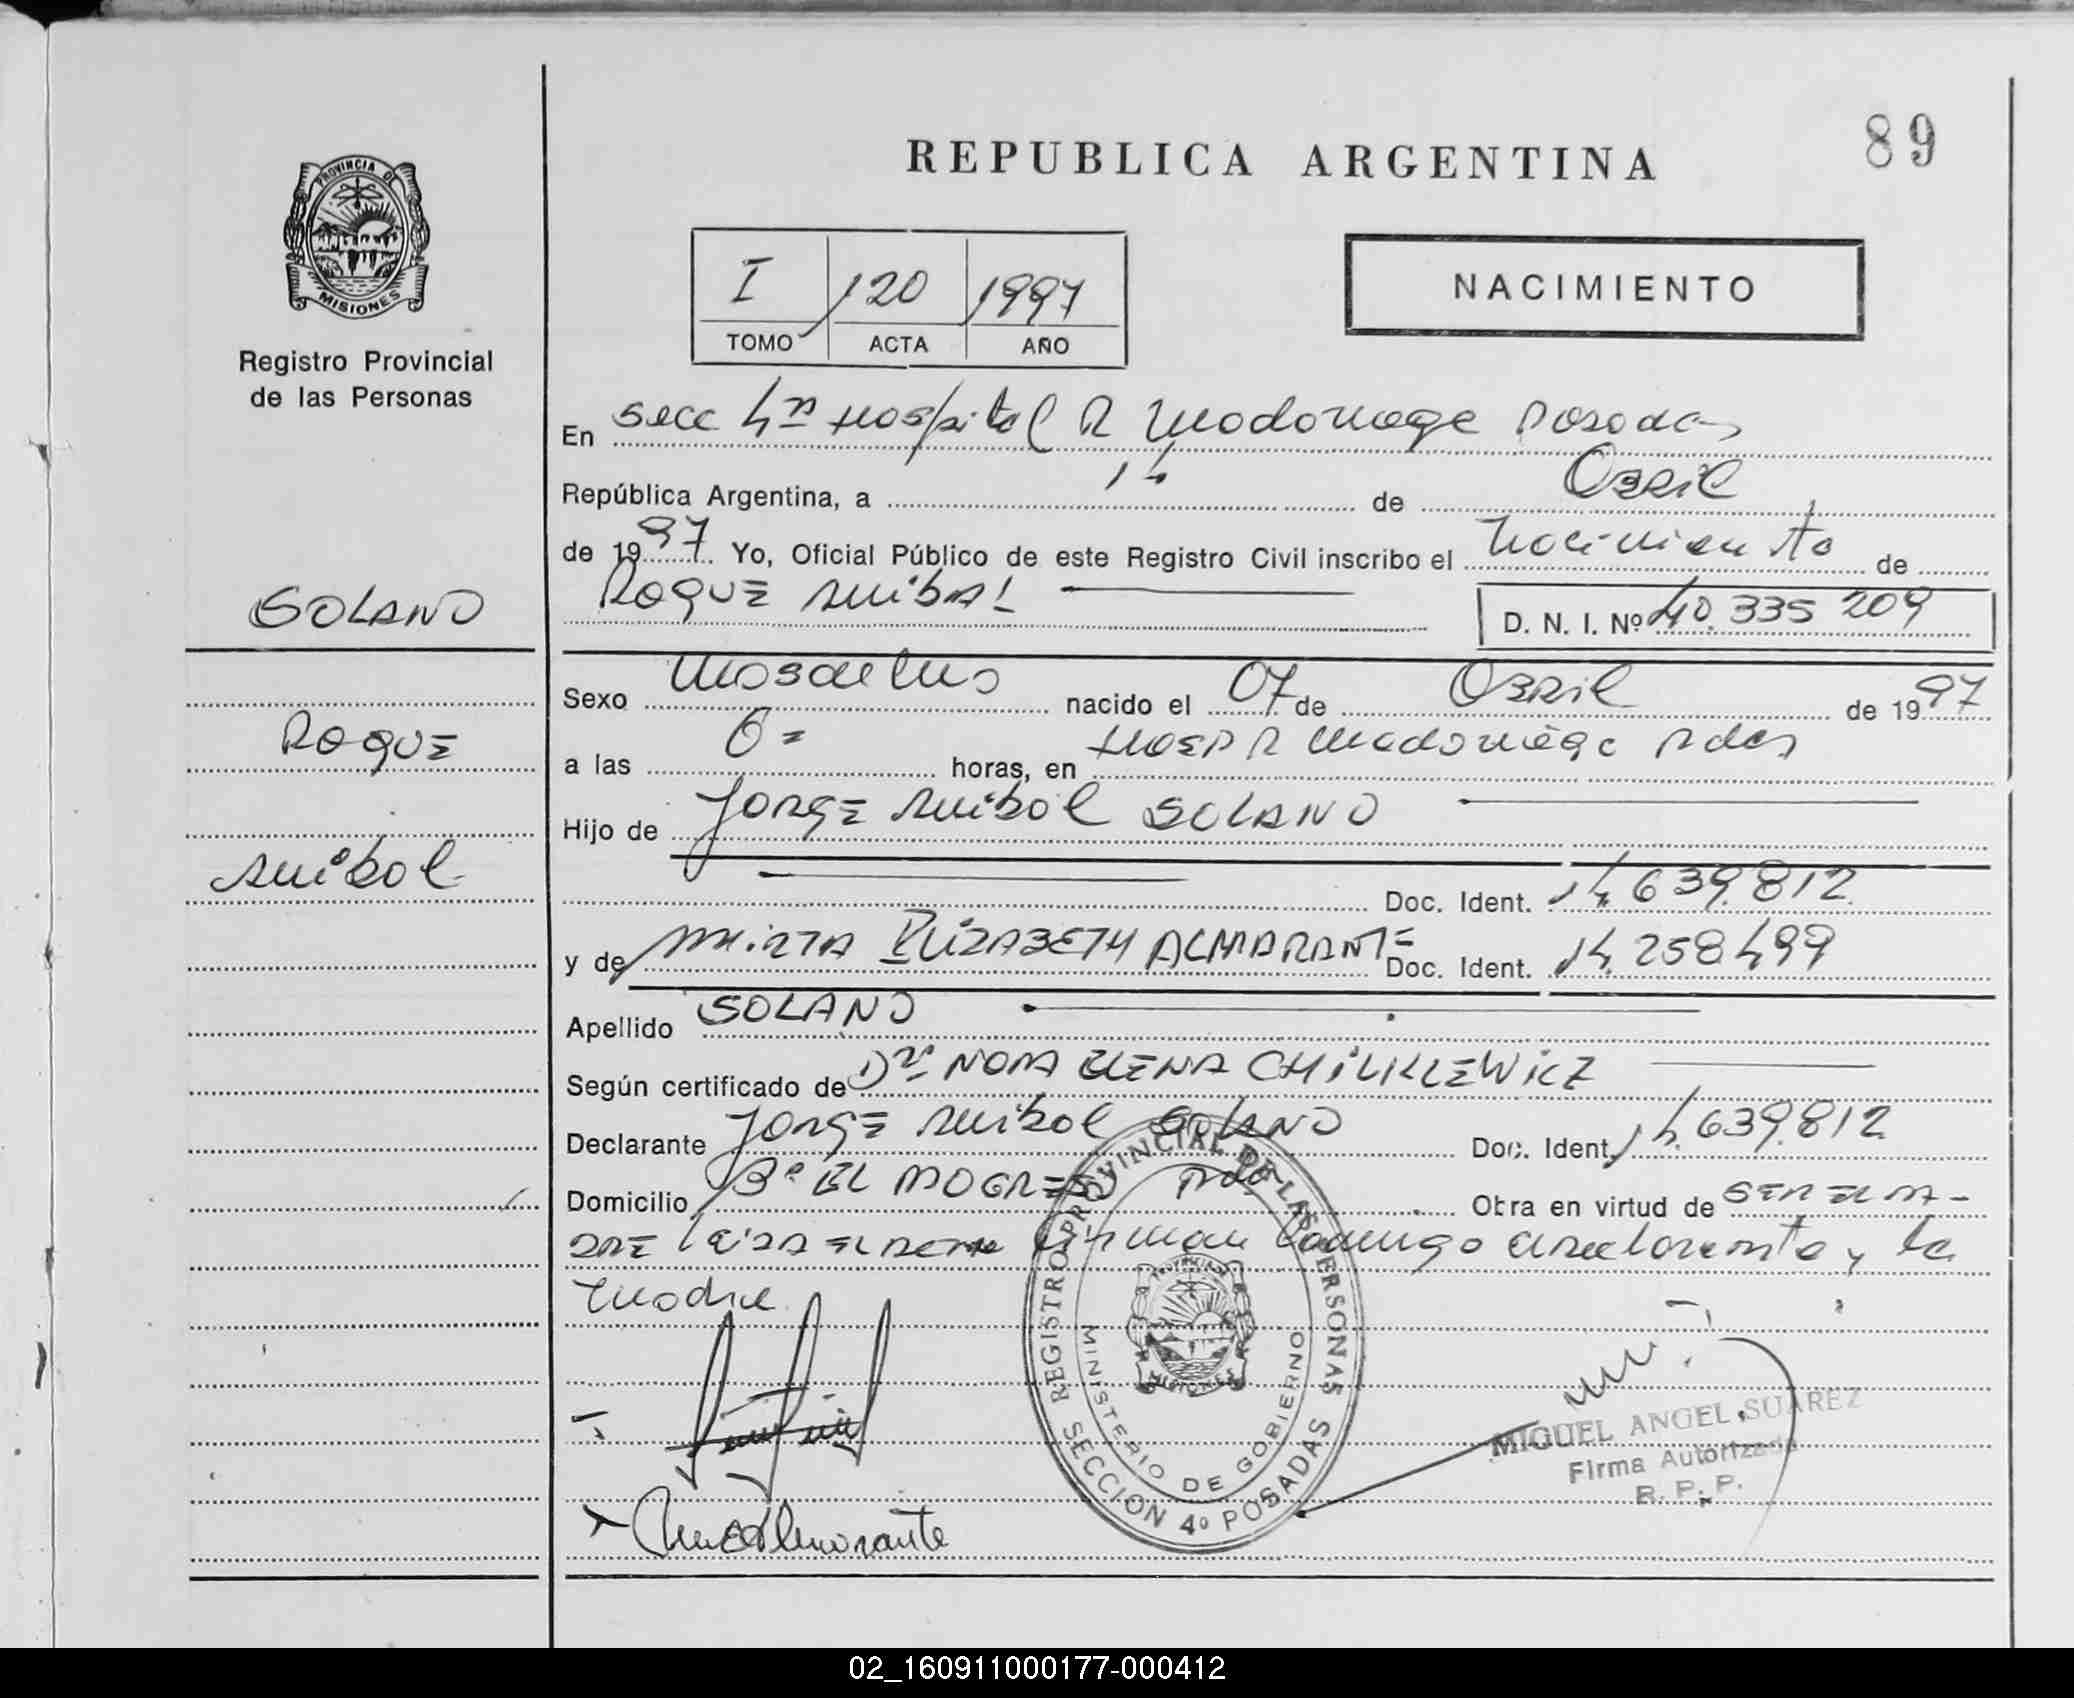 89
REPUBLICA ARGENTINA
PROVINCIA D
MISIONES
I 120 1997
TOMO ACTA AÑO
NACIMIENTO
Registro Provincial
de las Personas
En Secc 4ta Hospital R Madariaga Posadas
República Argentina, a 14 de Abril
de 1997 Yo, Oficial Público de este Registro Civil inscribo el Nacimiento de
Roque Anibal D. N. I. Nº 40.335 209
SOLANO
Roque
Anibal
Sexo Masculino nacido el 07 de Abril de 1997
a las 6= horas, en Hosp R Madariaga Pdas
Hijo de Jorge Anibal SOLANO
Doc. Ident. 14.639.812
y de Mirta Elizabeth ALMARANTE Doc. Ident. 14.258.499
Apellido SOLANO
Según certificado de Dra Nora Elena
Declarante Jorge Anibal SOLANO Doc. Ident. 14.639.812
Domicilio Bº El Progreso Pdas Otra en virtud de ser el pa-
dre leida el acta firman conmigo declarante y la
Madre
REGISTRO PROVINCIAL DE LAS PERSONAS
MINISTERIO DE GOBIERNO
SECCION 4º POSADAS
MIGUEL ANGEL SUAREZ
Firma Autorizada
R. P. P.
02_160911000177-000412